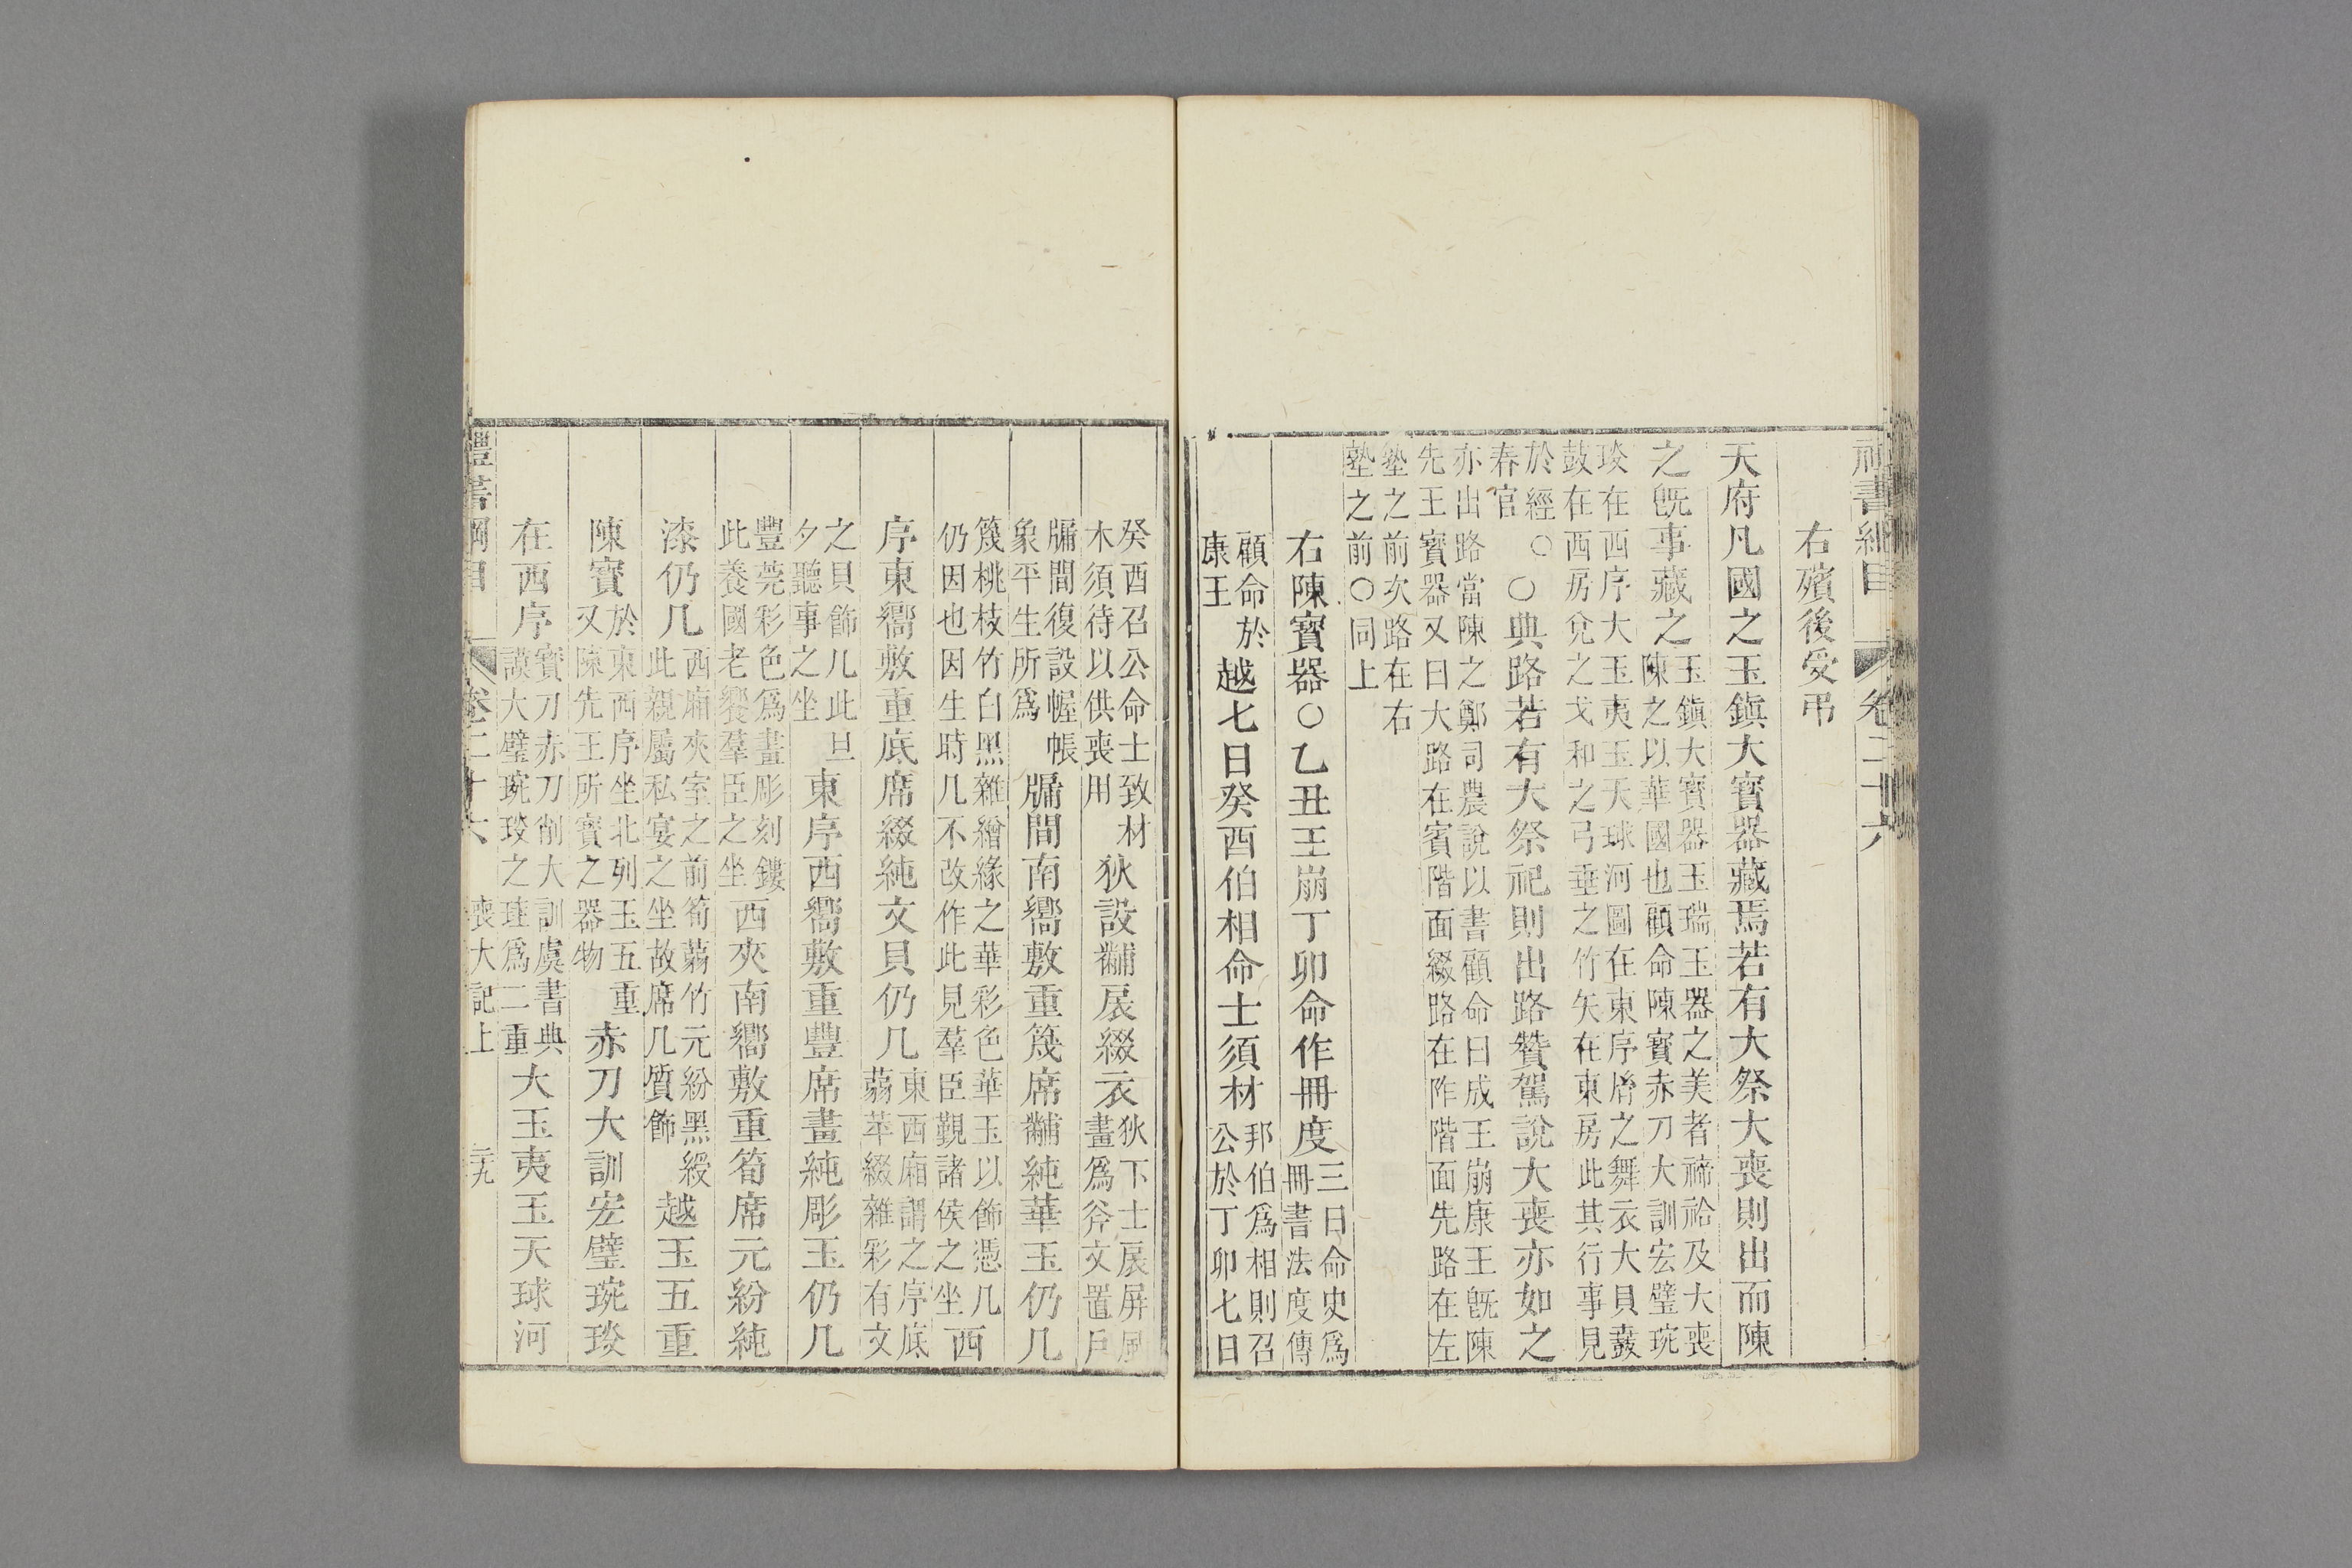 禮書綱目 卷二十六
右殯後受弔
天府凡國之玉鎭大寶器藏焉若有大祭大喪則出而陳
之旣事藏之
玉鎭大寶器玉瑞玉器之美者禘祫及大喪
陳之以華國也顧命陳寶赤刀大訓宏璧琬
琰在西序大玉夷玉天球河圖在東序胤之舞衣大貝鼖
鼓在西房兌之戈和之弓垂之竹矢在東房此其行事見
於經○
春官
○典路若有大祭祀則出路贊駕說大喪亦如之
亦出路當陳之鄭司農說以書顧命曰成王崩康王旣陳
先王寶器又曰大路在賓階面綴路在阼階面先路在左
塾之前次路在右
塾之前○同上
右陳寶器○乙丑王崩丁卯命作冊度
三日命史爲
冊書法度傳
顧命於
康王
越七日癸酉伯相命士須材
邦伯爲相則召
公於丁卯七日
癸酉召公命士致材
木須待以供喪用
狄設黼扆綴衣
狄下士扆屏風
畫爲斧文置戶
牖間復設幄帳
象平生所爲
牖間南嚮敷重篾席黼純華玉仍几
篾桃枝竹白黑雜繒緣之華彩色華玉以飾憑几
仍因也因生時几不改作此見羣臣覲諸侯之坐
西
序東嚮敷重底席綴純文貝仍几
東西廂謂之序底
蒻苹綴雜彩有文
之貝飾几此旦
夕聽事之坐
東序西嚮敷重豐席畫純彫玉仍几
豐莞彩色爲畫彫刻鏤
此養國老饗羣臣之坐
西夾南嚮敷重筍席元紛純
漆仍几
西廂夾室之前筍蒻竹元紛黑綬
此親屬私宴之坐故席几質飾
越玉五重
陳寶
於東西序坐北列玉五重
又陳先王所寶之器物
赤刀大訓宏璧琬琰
在西序
寶刀赤刀削大訓虞書典
謨大璧琬琰之珪爲二重
大玉夷玉天球河
禮書綱目 卷二十六 喪大記上